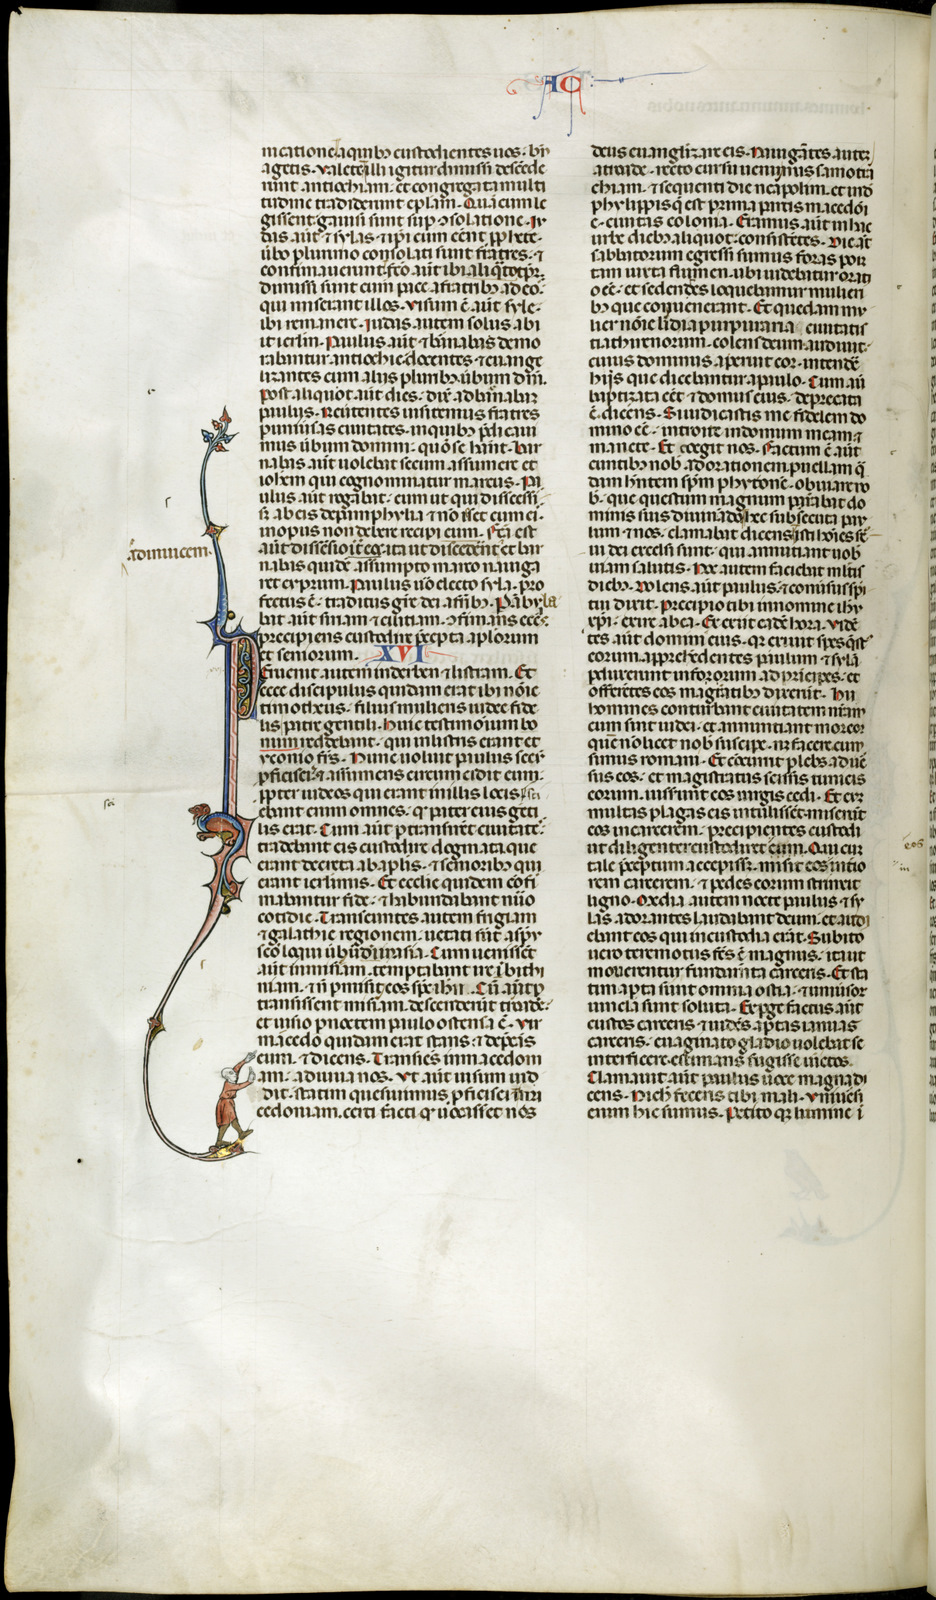 AC
nicatione a quibȝ custodientes uos. bn̄
agetis. Valete. Illi igitur dimissi descēde
runt antiochiam. et congregata multi
tudine tradiderunt ep̄lam. Quā cum le
gissent. gauisi sunt sup ꝯsolatione. Iu
das aūt ⁊ sylas. ⁊ ip̄i cum eēnt ꝓphete.
ūbo plurimo consolati sunt fratres. ⁊
confirmauerunt. fc̄o aūt ibi aliqͣto tp̄r.
dimissi sunt cum pace a fratribȝ ad eos.
qui miserant illos. Visum ē aūt syle.
ibi remanere. Iudas autem solus abi
it ierl̄m. Paulus aūt ⁊ barnabas demo
rabantur antiochie. docentes ⁊ euange
lizantes cum aliis pluribȝ. ūbum dn̄i.
Post aliquot aūt dies. dix̄ ad barnabā
paulus. Reūtentes uisitemus fratres
p uniūsas ciuitates. in quibȝ p̄dicaui
mus ūbum domini. quō se habāt. Bar
nabas aūt uolebat secum assumere et
ioh̄em qui cognominatur marcus. Pa
ulus aūt rogabat. eum ut qui discessis
s; ab eis de pamphylia ⁊ nō isset cum ei
in opus non debere recipi eum. Fc̄a est
aūt dissēsio ita ut discederēt et bar
ad inuicem.
nabas quidē assumpto marco nauiga
ret cyprum. Paulus ūo electo syla. pro
fectus ē. traditus grē dei a fr̄ibȝ. Pābula
bat aūt siriam ⁊ ciliciam. ꝯfirmans ecc̄s
precipiens custodire p̄cepta aplorum
et seniorum. XVI
Peruenit autem in derben ⁊ listram. Et
ecce discipulus quidam erat ibi nōie
timotheus. filius mulieris iudee fide
lis. patre gentili. Huic testimonium bo
num reddebant. qui in listris erant et
yconio fr̄s. Hunc uoluit paulus secū
ꝓficisci. ⁊ assumens circumcidit eum.
ꝓpter iudeos qui erant in illis locis. sci
ebant enim omnes. qͥ pater eius genti
lis erat. Cum aūt ptransirēt ciuitates.
tradebant eis custodire dogmata que
erant decreta ab apl̄is. ⁊ senioribȝ qui
erant ierl̄imis. Et ecc̄lie quidem cōfir
mabantur fide. ⁊ habundabant nūo
cotidie. Transeuntes autem frigiam
⁊ galathie regionem. uetati sūt a sp̄u
sc̄o loqui ūbū in asia. Cum uenissēt
aūt in misiam. temptabant ire ī bithi
niam. ⁊ nō pmisit eos sp̄c ih̄u. Cū aūt p
transissent misiam. descenderūt troade.
et uisio p noctem paulo ostensa ē. Vir
macedo quidam erat stans. ⁊ dep̄cās
eum. ⁊ dicens. Transiēs in macedoni
am. adiuua nos. Vt aūt uisum uid
dit. statim quesiuimus ꝓficisci in ma
cedoniam. certi facti qͥ uocasset nos
deus euangelizare eis. Nauigātes autē
a troade. recto cursu uenimus samotra
chiam. ⁊ sequenti die neapolim. et inde
phylippis. q̄ est prima partis macedoī
ē. ciuitas colonia. Eramus aūt in hac
urbe diebȝ aliquot. consistētes. Die aūt
sabbatorum egressi sumus foras por
tam iuxta flumen. ubi uidebatur orati
o eē. et sedentes loquebamur mulieri
bȝ que conuenerant. Et quedam mu
lier nōie lidia purpuraria ciuitatis
tiathirenorum. colens deum audiuit.
cuius dominus aperuit cor. intende
hiis que dicebantur a paulo. Cum aūt
baptizata eēt ⁊ domus eius. deprecata
ē. dicens. Si iudicastis me fidelem do
mino eē. introite in domum meam. ⁊
manete. Et coegit nos. Factum ē aūt
euntibȝ nob̄ ad orationem. puellam q̄
dam hn̄tem sp̄m phytonē. obuiare no
b̄. que questum magnum p̄stabat do
minis suis diuinādo. hec subsecuta pau
lum ⁊ nos. clamabat dicens. Isti hōies s̄
ui dei excelsi sunt. qui annūtiant uob̄
uiam salutis. Hoc autem faciebat mltis
diebȝ. Dolens aūt paulus. ⁊ cōuersus sp̄i
tui dixit. Precipio tibi in nomine ih̄u
xp̄i. exire ab ea. Et exiit eadē hora. Vidē
tes aūt domini eius. qͥ exiuit spes q̄st
eorum. apprehēdentes paulum ⁊ sylā
pduxerunt in forum ad prīcipes. et
offerētes eos magr̄atibȝ dixerūt. Hii
homines conturbant ciuitatem nr̄am
cum sint iudei. et annuntiant morem
quē nō licet nob̄ suscipe. nȝ facere cum
simus romani. Et cōcurrit plebs aduer̄
sus eos. et magistratus scissis tunicis
eorum. iusserunt eos uirgis cedi. Et cum
multas plagas eis intulissēt. miserūt
eos in carcerem. precipientes custodi
ut diligenter custodiret eum. Qui cum
eos
tale p̄ceptum accepiss̄. misit eos in īterio
rem carcerem. ⁊ pedes eorum strinxit
ligno. Media autem nocte paulus ⁊ sy
las adorantes laudabant deum. et audi
ebant eos qui in custodia erāt. Subito
uero teremotus fc̄s ē magnus. ita ut
mouerentur fundamēta carceris. Et sta
tim apta sunt omnia ostia. ⁊ uniūsor̄
uincla sunt soluta. Expgefactus aūt
custos carceris ⁊ uidēs aptas ianuas
carceris. euaginato gladio uolebat se
interficere. estimans fugisse uictos.
Clamauit aūt paulus uoce magna di
cens. Nich̄ feceris tibi mali. Vniuersi
enim hic sumus. Petito qͥ lumine ī